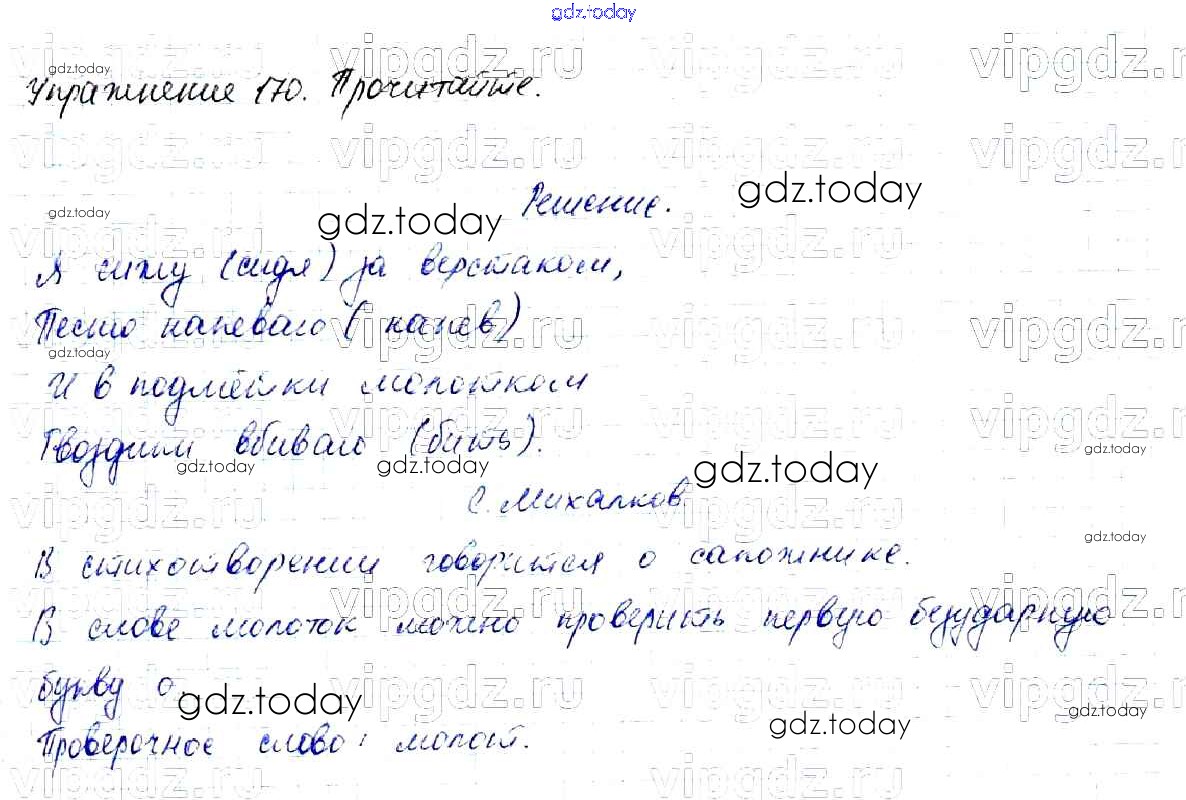 gdz.today
Упражнение 170. Прочитайте.
Решение.
Я сижу (сидя) за верстаком,
Песню напеваю (напев)
И в подмётки молотком
Гвоздики вбиваю (бить).
С. Михалков.
В стихотворении говорится о сапожнике.
В слове молоток можно проверить первую безударную
букву о.
Проверочное слово: молот.
gdz.today
vipgdz.ru